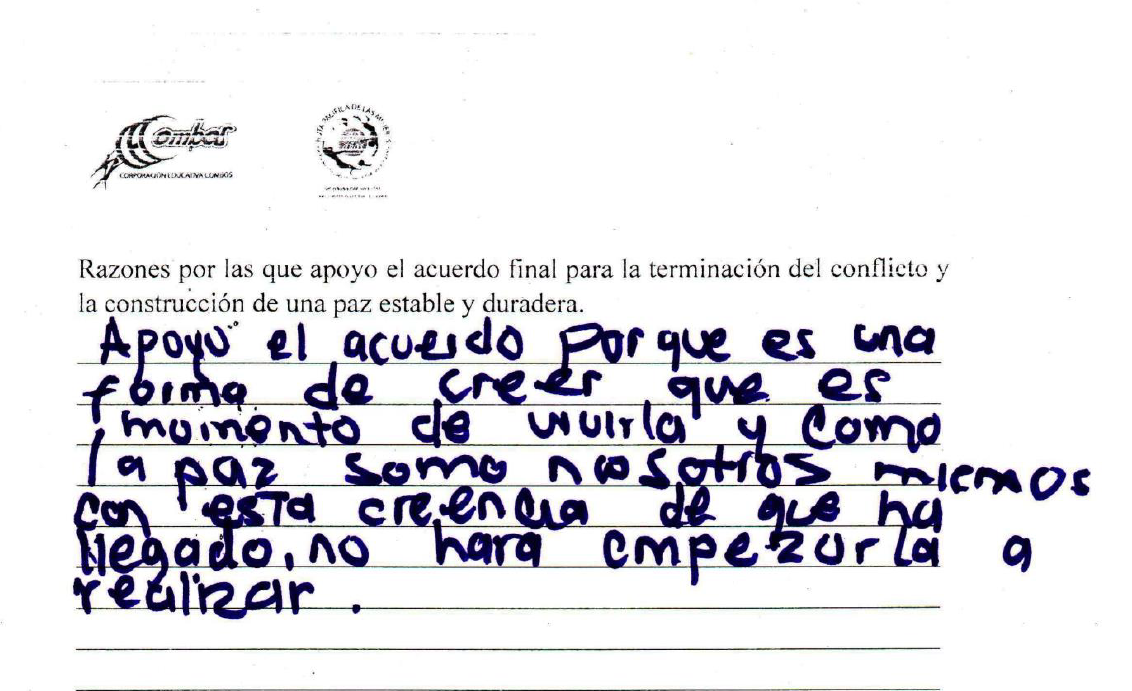 Combos
CORPORACIÓN EDUCATIVA COMBOS
RUTA PACIFICA DE LAS MUJERES
Razones por las que apoyo el acuerdo final para la terminación del conflicto y
la construcción de una paz estable y duradera.
Apoyo el acuerdo porque es una
forma de creer que es
momento de vivirla y como
la paz somo nosotros miemos
con esta creencia de que ha
llegado, no hara empezarla a
realizar.